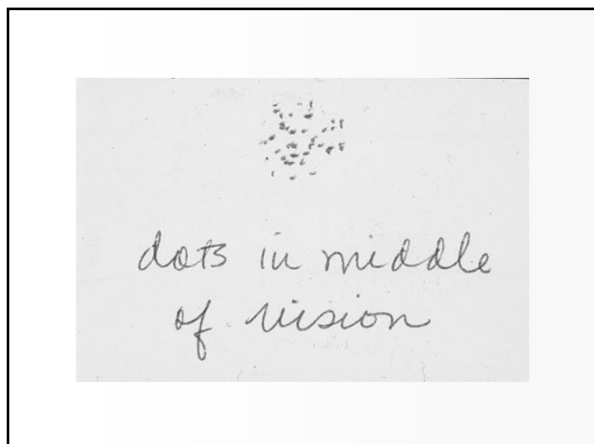 dots in middle
of vision